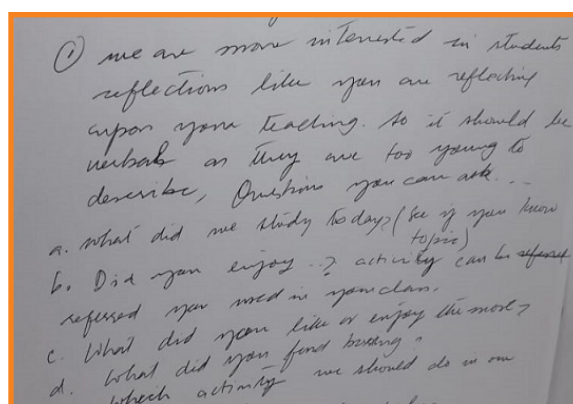 ① we are more interrested in students
reflections like you are reflecting
upon your teaching. So it should be
verbal as they are too young to
describe, Questions you can ask...
a. What did we study today? (see if you know
topic)
b. Did you enjoy ..? activity can be refered
refersed you used in your class.
c. What did you like or enjoy the most?
d. What did you find boring?
Which activity we should do in our